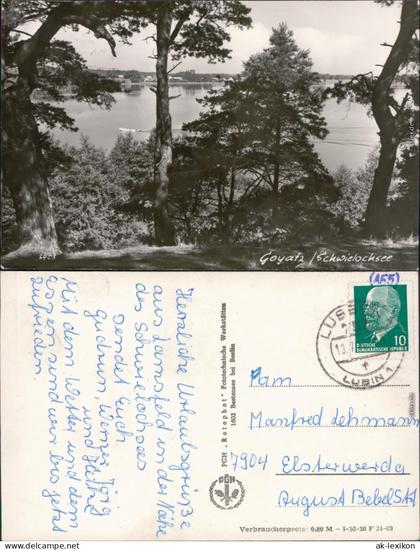 6951
Goyatz / Schwielochsee
(455)
LUBIN 1
DEUTSCHE
DEMOKRATISCHE REPUBLIK
10
Herzliche Urlaubsgrüße
aus Lamsfeld in der Nähe
des Schwielochsees
sendet Euch
Gudrun, Werner, Jörg
und Astrid
Mit dem Wetter und dem
Essen sind wir bis jetzt
zufrieden.
PGH „Rotophot" Fototechnische Werkstätten
1602 Bestensee bei Berlin
PGH
Fam
Manfred Lehmann
7904 Elsterwerda
August Bebel Str 1
Verbraucherpreis: 0,20 M – 1-50-20 F 21-69
© ak-lexikon
www.ak-lexikon.de